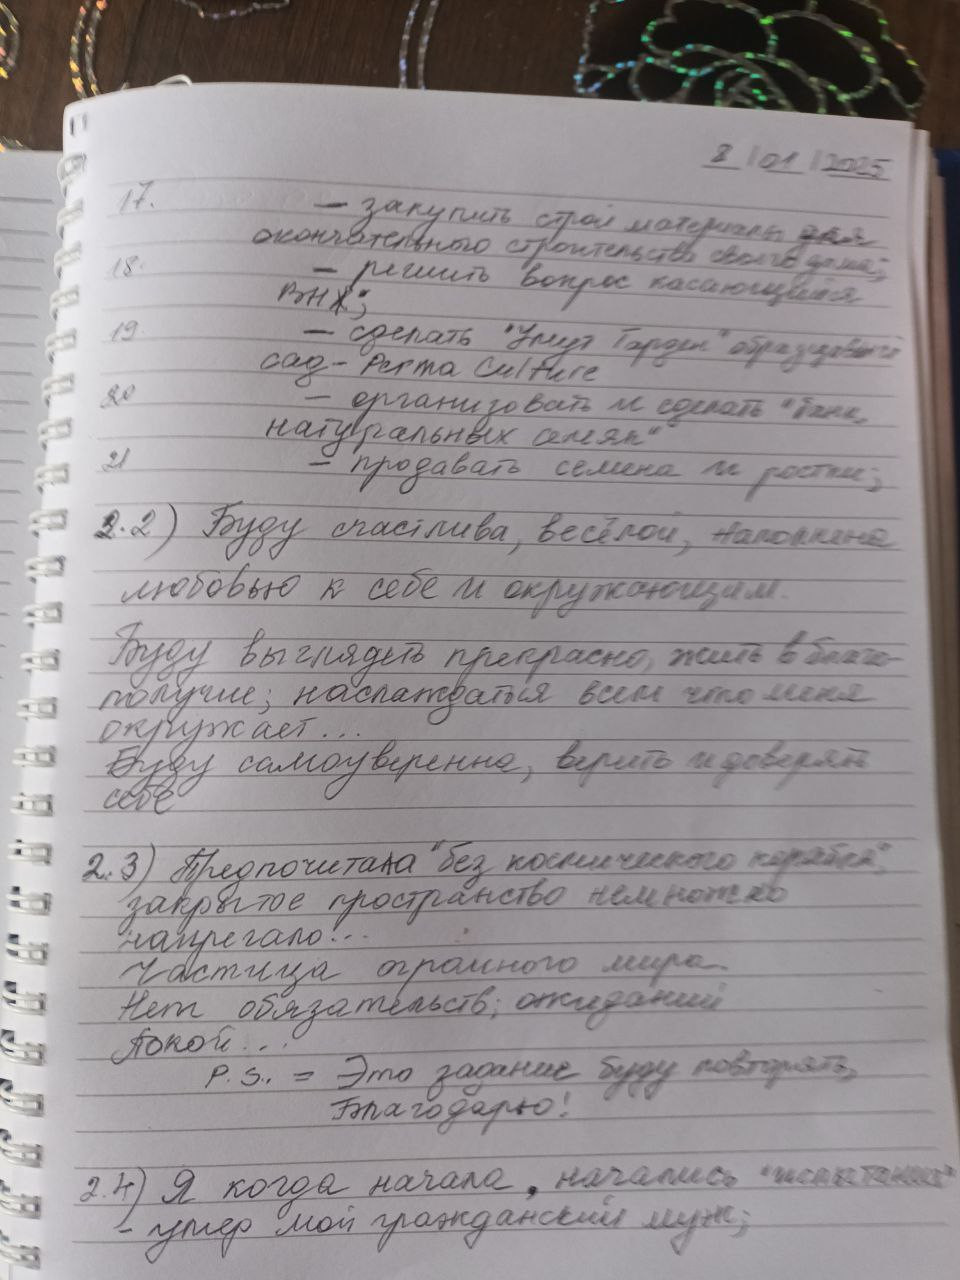 8/01/2025
17. — закупить строй материалы для
окончательного строительства своего дома;
18. — решить вопрос касающийся
ВНЖ;
19. — сделать "Умут Гарден" образцовый
сад - Perma Culture
20 — организовать и сделать "банк
натуральных семян"
21 — продавать семена и ростки;
2.2) Буду счастлива, весёлой, наполнена
любовью к себе и окружающим.
Буду выглядеть прекрасно, жить в благо-
получие; наслаждаться всем что меня
окружает...
Буду самоуверенна, верить и доверять
себе
2.3) Предпочитала "без космического корабля",
закрытое пространство немножко
напрегало...
Частица огромного мира.
Нет обязательств; ожиданий
Покой...
P.S. = Это задание буду повторять,
Благодарю!
2.4) Я когда начала, начались
- умер мой гражданский муж;